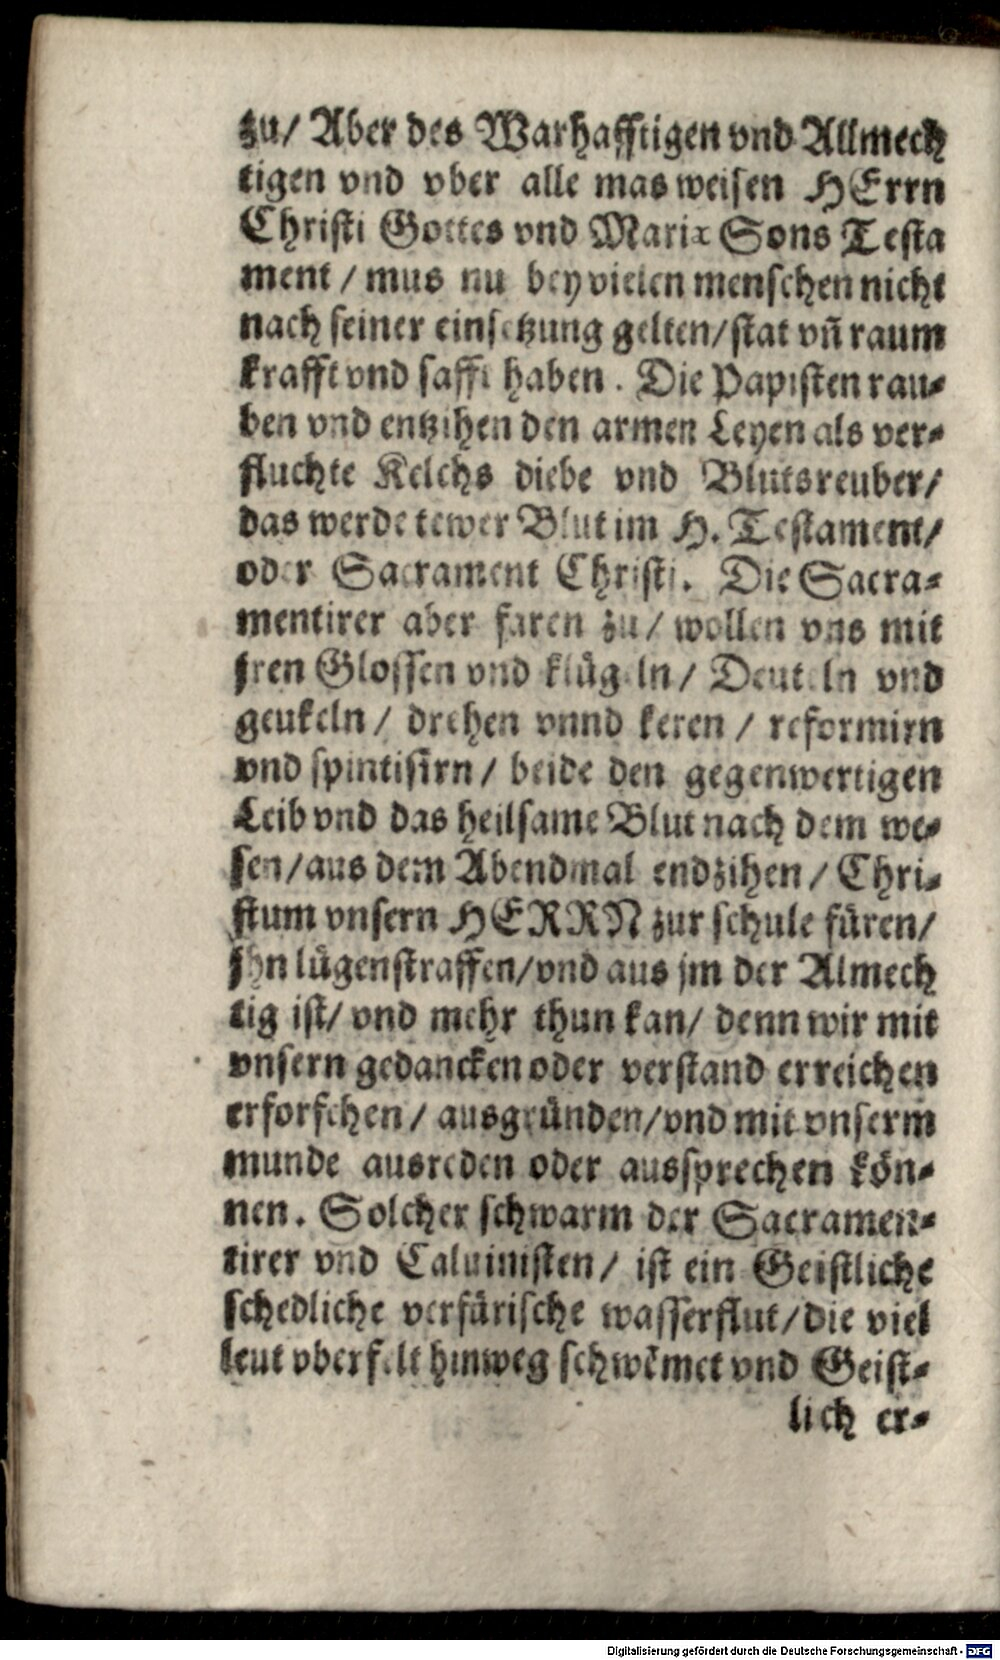 zu/ Aber des Warhafftigen vnd Allmech
tigen vnd vber alle mas weisen HErrn
Christi Gottes vnd Mariæ Sons Testa
ment / mus nu bey vielen menschen nicht
nach seiner einsetzung gelten/ stat vñ raum
krafft vnd safft haben. Die Papisten rau-
ben vnd entzihen den armen Leyen als ver-
fluchte Kelchs diebe vnd Blutsreuber/
das werde tewer Blut im H. Testament/
oder Sacrament Christi. Die Sacra-
mentirer aber faren zu/ wollen vns mit
jren Glossen vnd klügeln/ Deuteln vnd
geukeln/ drehen vnnd keren / reformirn
vnd spintisirn/ beide den gegenwertigen
Leib vnd das heilsame Blut nach dem we-
sen/aus dem Abendmal endzihen/ Chri-
stum vnsern HERRN zur schule füren/
jhn lügenstraffen/vnd aus jm der Almech
tig ist/ vnd mehr thun kan/ denn wir mit
vnsern gedancken oder verstand erreichen
erforschen/ ausgründen/vnd mit vnserm
munde ausreden oder aussprechen kön-
nen. Solcher schwarm der Sacramen-
tirer vnd Caluinisten/ ist ein Geistliche
schedliche verfürische wasserflut/die viel
leut vberfelt hinweg schwẽmet vnd Geist-
lich er-
Digitalisierung gefördert durch die Deutsche Forschungsgemeinschaft - DFG